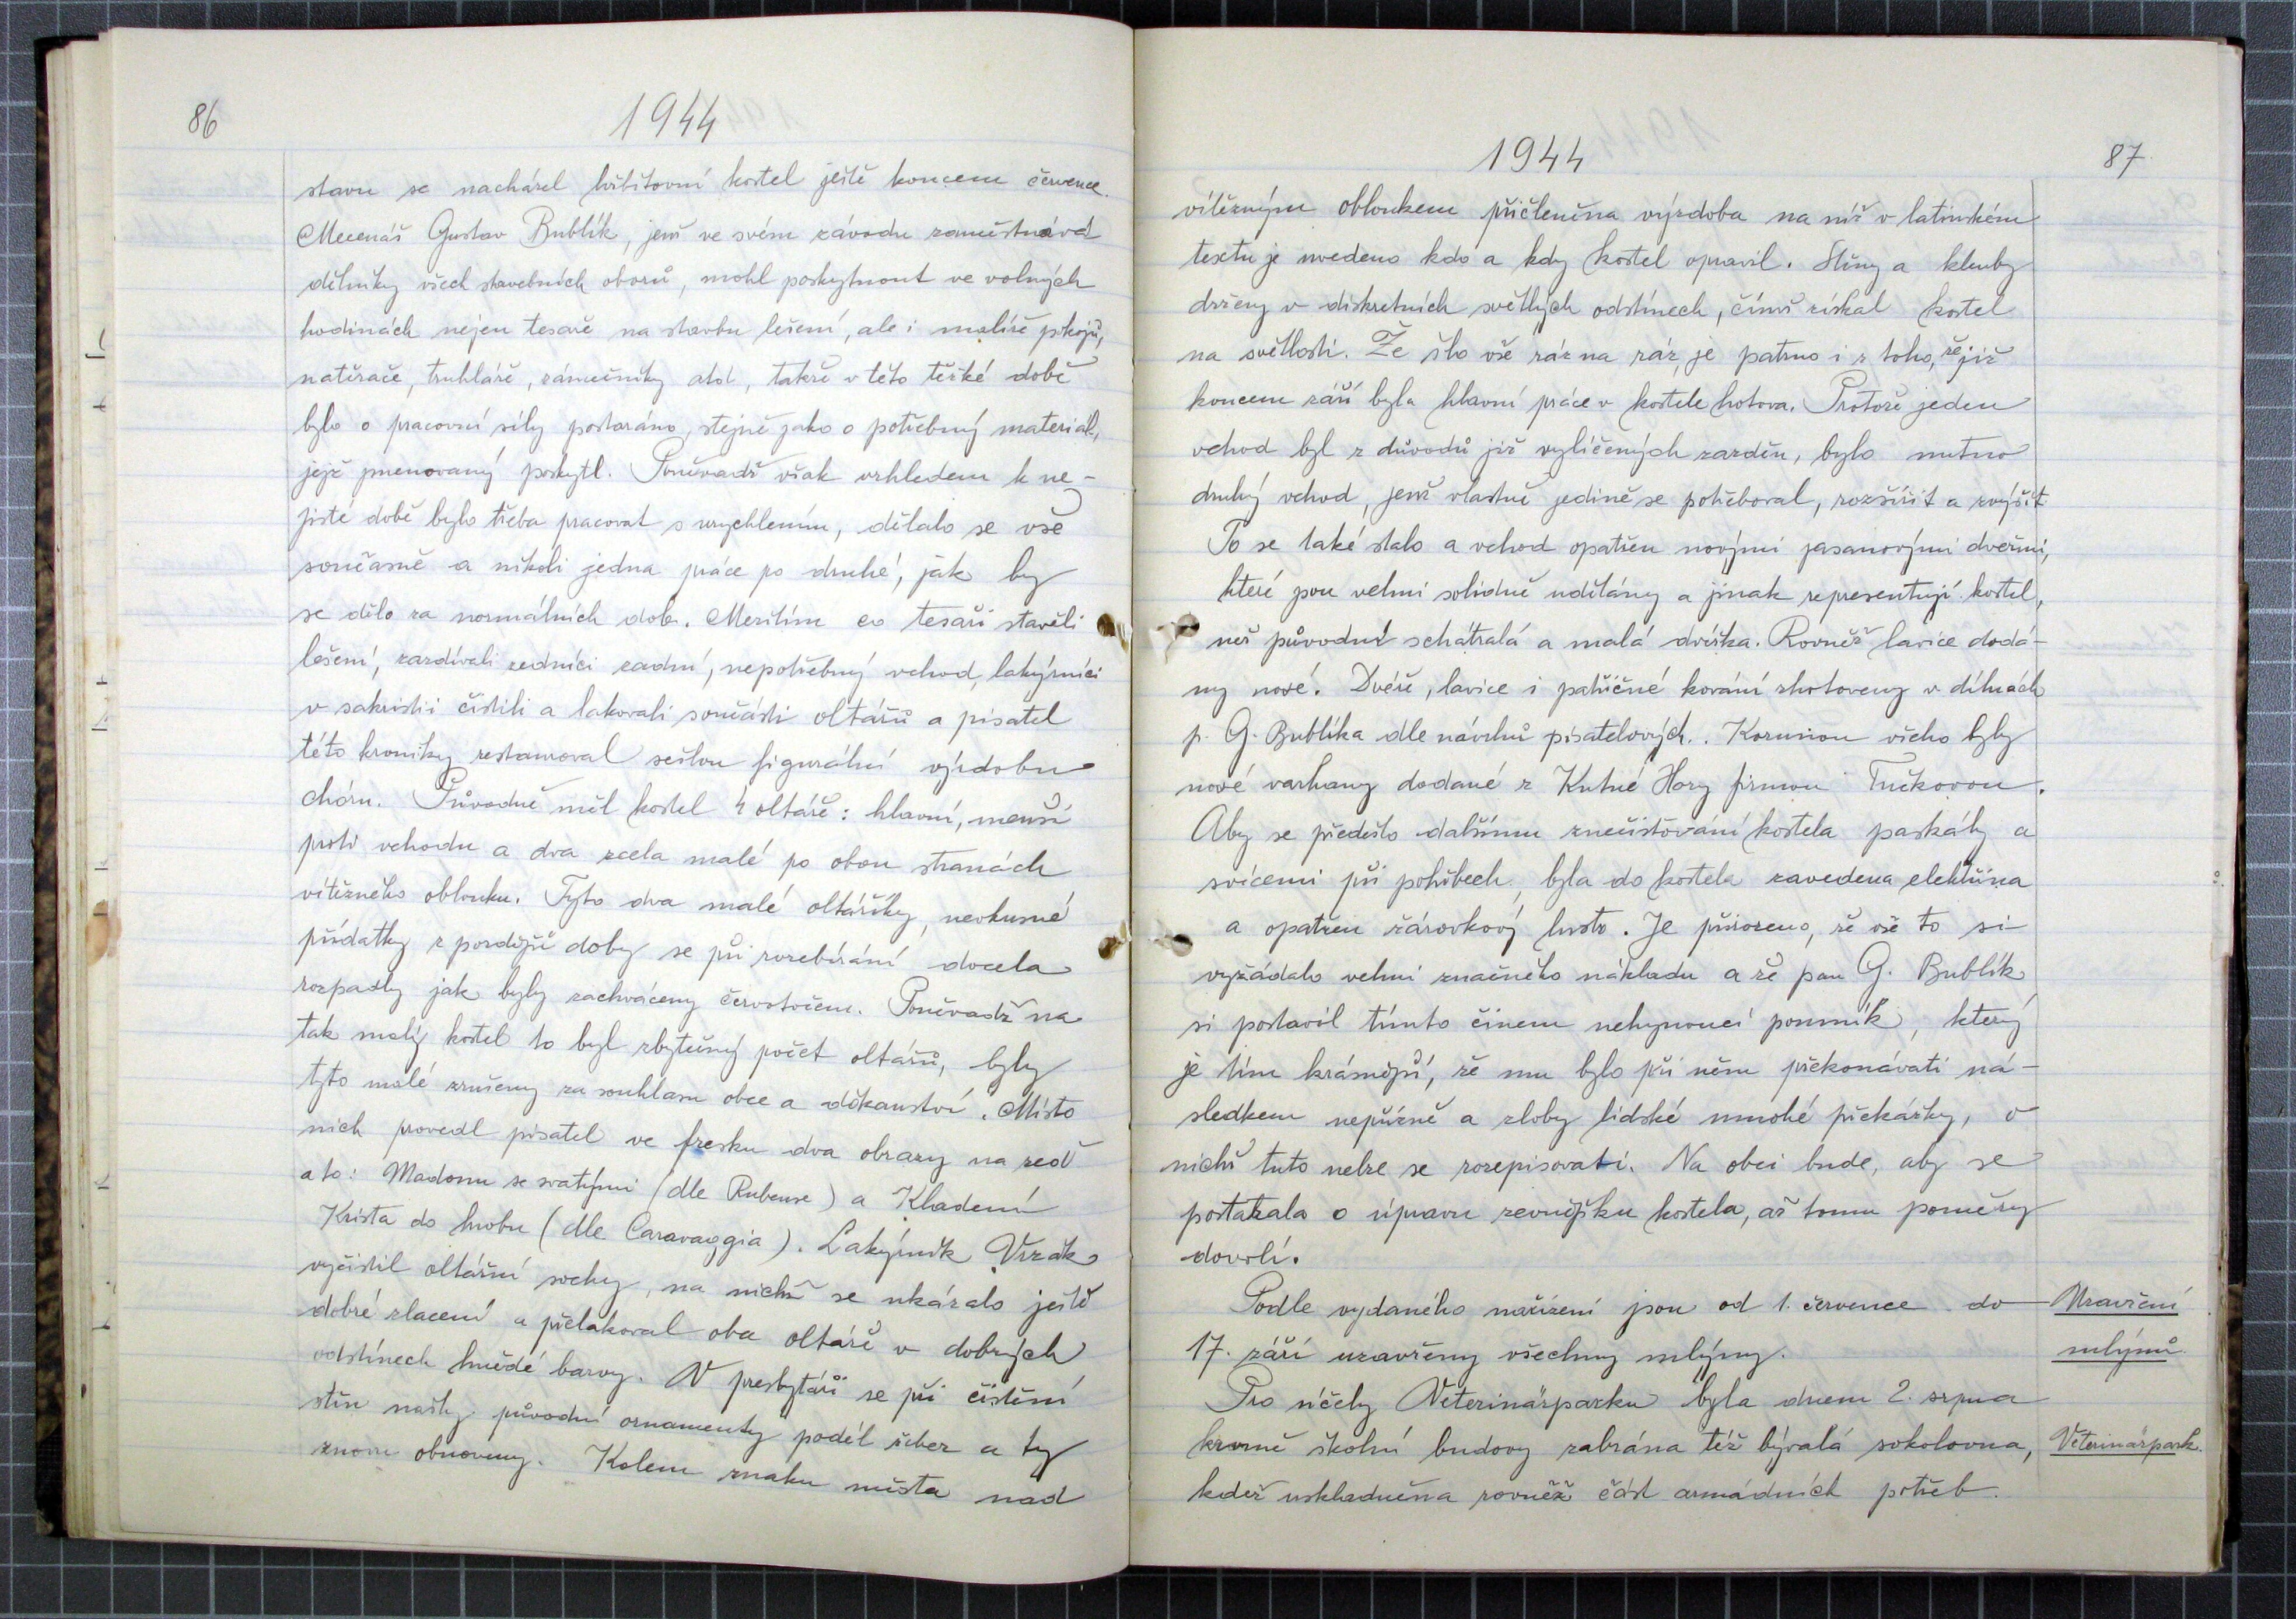 86
1944
stavu se nacházel hřbitovní kostel ještě koncem července.
Mecenáš Gustav Bublík, jenž ve svém závodu zaměstnával
dělníky všech stavebních oborů, mohl poskytnout ve volných
hodinách nejen tesaře na stavbu lešení, ale i malíře pokojů,
natěrače, truhláře, zámečníky atd, takže v této těžké době
bylo o pracovní síly postaráno, stejně jako o potřebný materiál,
jejž jmenovaný poskytl. Poněvadž však vzhledem k ne-
jisté době bylo třeba pracovat s urychlením, dělalo se vše
současně a nikoli jedna práce po druhé, jak by
se dělo za normálních dob. Mezitím co tesaři stavěli
lešení, zazdívali zedníci zadní, nepotřebný vchod, lakýrníci
v sakristii čistili a lakovali součásti oltářů a pisatel
této kroniky restauroval sešlou figurální výzdobu
chóru. Původně měl kostel 4 oltáře: hlavní, menší
proti vchodu a dva zcela malé po obou stranách
vítězného oblouku. Tyto dva malé oltáříky, nevkusné
přídatky z pozdější doby se při rozebírání docela
rozpadly jak byly zachváceny červotočem. Poněvadž na
tak malý kostel to byl zbytečný počet oltářů, byly
tyto malé zrušeny za souhlasu obce a děkanství. Místo
nich provedl pisatel ve fresku dva obrazy na zeď
a to: Madonu se svatými (dle Rubense) a Kladení
Krista do hrobu (dle Caravaggia). Lakýrník Vrzák
vyčistil oltářní sochy, na nichž se ukázalo ještě
dobré zlacení a přelakoval oba oltáře v dobrých
odstínech hnědé barvy. V presbytáři se při čistění
stěn našly původní ornamenty podél žeber a ty
znovu obnoveny. Kolem znaku města nad
1944
87
vítězným obloukem přičleněna výzdoba na níž v latinském
textu je uvedeno kdo a kdy kostel opravil. Stěny a klenby
drženy v diskretních světlých odstínech, čímž získal kostel
na světlosti. Že šlo vše ráz na ráz, je patrno i z toho, že již
koncem září byla hlavní práce v kostele hotova. Protože jeden
vchod byl z důvodů již vylíčených zazděn, bylo nutno
druhý vchod, jenž vlastně jedině se potřeboval, rozšířit a zvýšit.
To se také stalo a vchod opatřen novými jasanovými dveřmi,
které jsou velmi solidně udělány a jinak representují kostel,
než původní schátralá a malá dvířka. Rovněž lavice dodá-
ny nové. Dvéře, lavice i patřičné kování zhotoveny v dílnách
p. G. Bublíka dle návrhů pisatelových. Korunou všeho byly
nové varhany dodané z Kutné Hory firmou Tučkovou.
Aby se předešlo dalšímu znečisťování kostela paskály a
svícemi při pohřbech, byla do kostela zavedena elektřina
a opatřen žárovkový lustr. Je přirozeno, že vše to si
vyžádalo velmi značného nákladu a že pan G. Bublík
si postavil tímto činem nehynoucí pomník, který
je tím krásnější, že mu bylo při něm překonávati ná-
sledkem nepřízně a zloby lidské mnohé překážky, o
nichž tuto nelze se rozepisovati. Na obci bude, aby se
postarala o úpravu zevnějšku kostela, až tomu poměry
dovolí.
Podle vydaného nařízení jsou od 1. července do
Uzavření
17. září uzavřeny všechny mlýny.
mlýnů.
Pro účely Veterinärparku byla dnem 2. srpna
kromě školní budovy zabrána též bývalá sokolovna,
Veterinärpark.
kdež uskladněna rovněž část armádních potřeb.